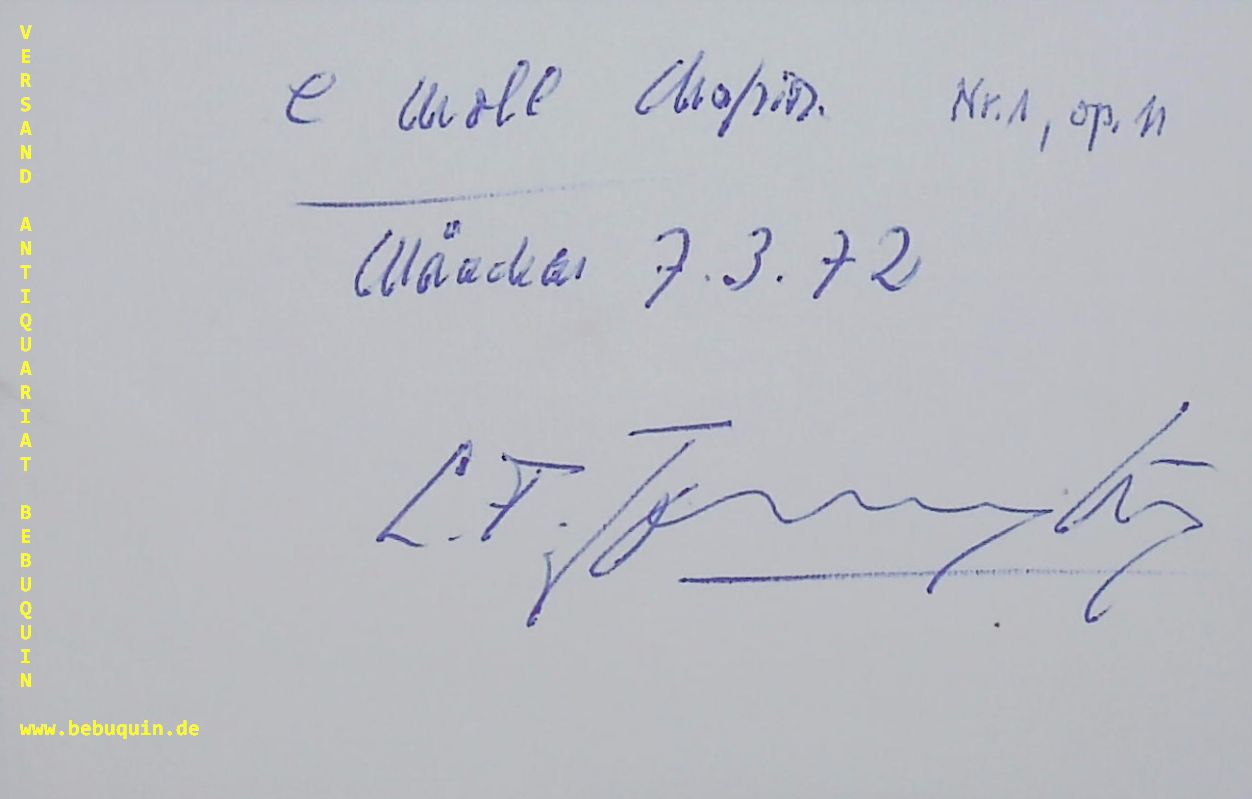 e moll Chopin. Nr. 1, op. 11
München 7.3.72
VERSAND ANTIQUARIAT BEBUQUIN
www.bebuquin.de